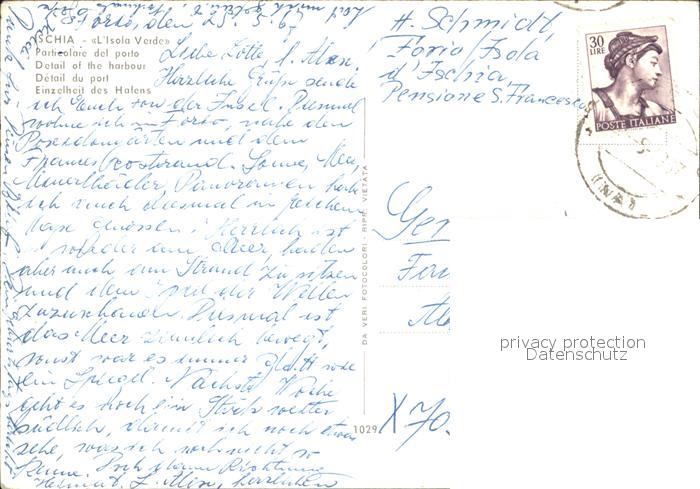 Forio, den 25.
ISCHIA - «L'Isola Verde»
Particolare del porto
Detail of the harbour
Détail du port
Einzelheit des Hafens
Liebe Lotte, l. Alex.
Herzliche Grüße sende
ich Euch von der Insel. Diesmal
wohne ich in Forio, nahe den
Poseidongärten und dem
Franzeskostrand. Sonne, Meer,
Panoramen habe
ich auch diesmal in reichem
Mase genossen. Herrlich ist
es wieder am Meer, baden
aber auch am Strand zu sitzen
und dem Spiel der Wellen
zuzuschauen. Diesmal ist
das Meer ziemlich bewegt,
sonst war es immer glatt wie
ein Spiegel. Nächste Woche
geht es noch ein Stück weiter
südlich, damit ich noch etwas
sehe, was ich noch nicht so
kenne. Doch dann Richtung
Heimat. L. Alex, herzlichen
DA VERI FOTOCOLORI. RIPR. VIETATA
1029
H. Schmidt,
Forio/Isola
d'Ischia,
Pensione S. Francesco
30
LIRE
POSTE ITALIANE
X 70.
privacy protection
Datenschutz